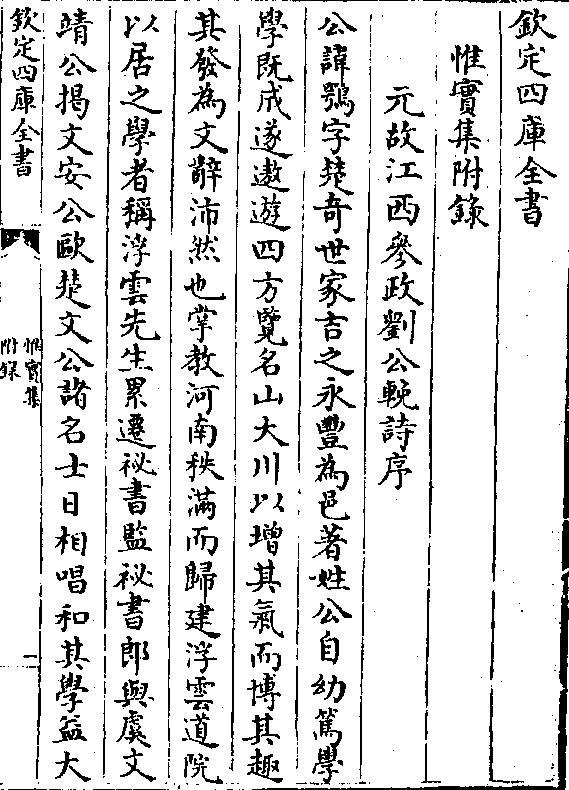 欽定四庫全書
惟實集附錄
元故江西參政劉公輓詩序
公諱鶚字楚奇世家吉之永豐為邑著姓公自幼篤學
學既成遂遨遊四方覽名山大川以增其氣而博其趣
其發為文辭沛然也掌教河南秩滿而歸建浮雲道院
以居之學者稱浮雲先生累遷祕書監祕書郎與虞文
靖公揭文安公歐楚文公諸名士日相唱和其學益大
欽定四庫全書
惟實集
附錄
一